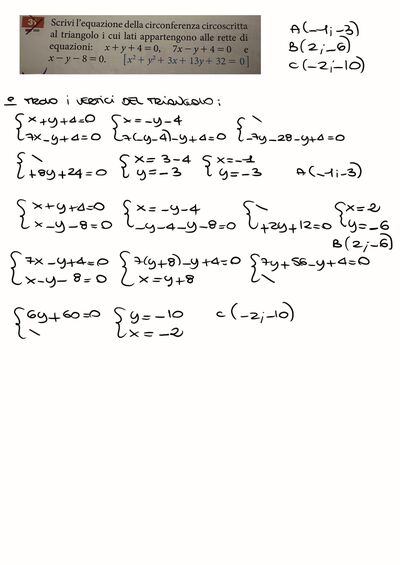 Scrivi l'equazione della circonferenza circoscritta
al triangolo i cui lati appartengono alle rette di
equazioni: x + y + 4 = 0, 7x − y + 4 = 0 e
x − y − 8 = 0. [x² + y² + 3x + 13y + 32 = 0]
A(-1;-3)
B(2;-6)
C(-2;-10)
TROVO I VERTICI DEL TRIANGOLO:
{x+y+4=0 {x=-y-4 {\
{7x-y+4=0 {7(-y-4)-y+4=0 {-7y-28-y+4=0
{\ {x=3-4 {x=-1
{+8y+24=0 {y=-3 {y=-3 A(-1;-3)
{x+y+4=0 {x=-y-4 {\ {x=2
{x-y-8=0 {-y-4-y-8=0 {+2y+12=0 {y=-6
B(2;-6)
{7x-y+4=0 {7(y+8)-y+4=0 {7y+56-y+4=0
{x-y-8=0 {x=y+8 {\
{6y+60=0 {y=-10 C(-2;-10)
{\ {x=-2